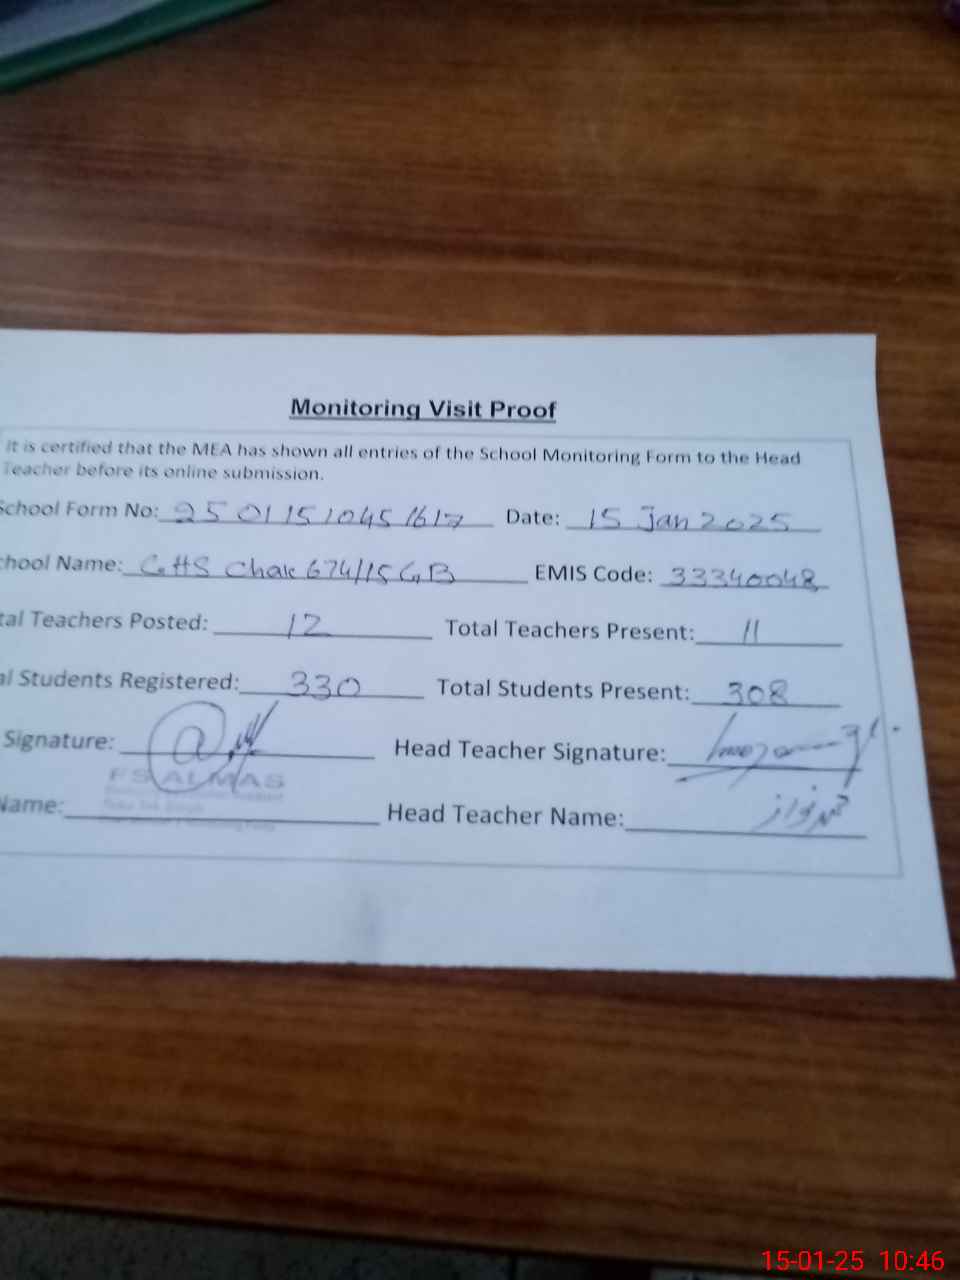 Monitoring Visit Proof
It is certified that the MEA has shown all entries of the School Monitoring Form to the Head
Teacher before its online submission.
School Form No: 25011510451617 Date: 15 Jan 2025
chool Name: GHS Chak 674/15 GB EMIS Code: 33340048
tal Teachers Posted: 12 Total Teachers Present: 11
al Students Registered: 330 Total Students Present: 308
Signature: Head Teacher Signature:
FS ALMAS
Name: Head Teacher Name:
15-01-25 10:46